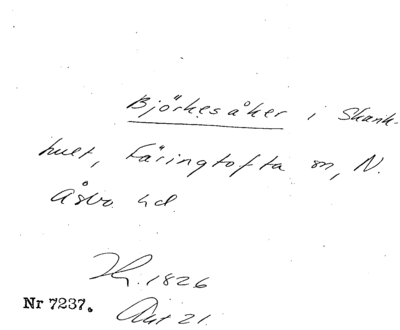 Björkesåker i Skank-
hult, Färingtofta sn, N.
Åsbo hd
1826
Nr 7237. Akt 21.